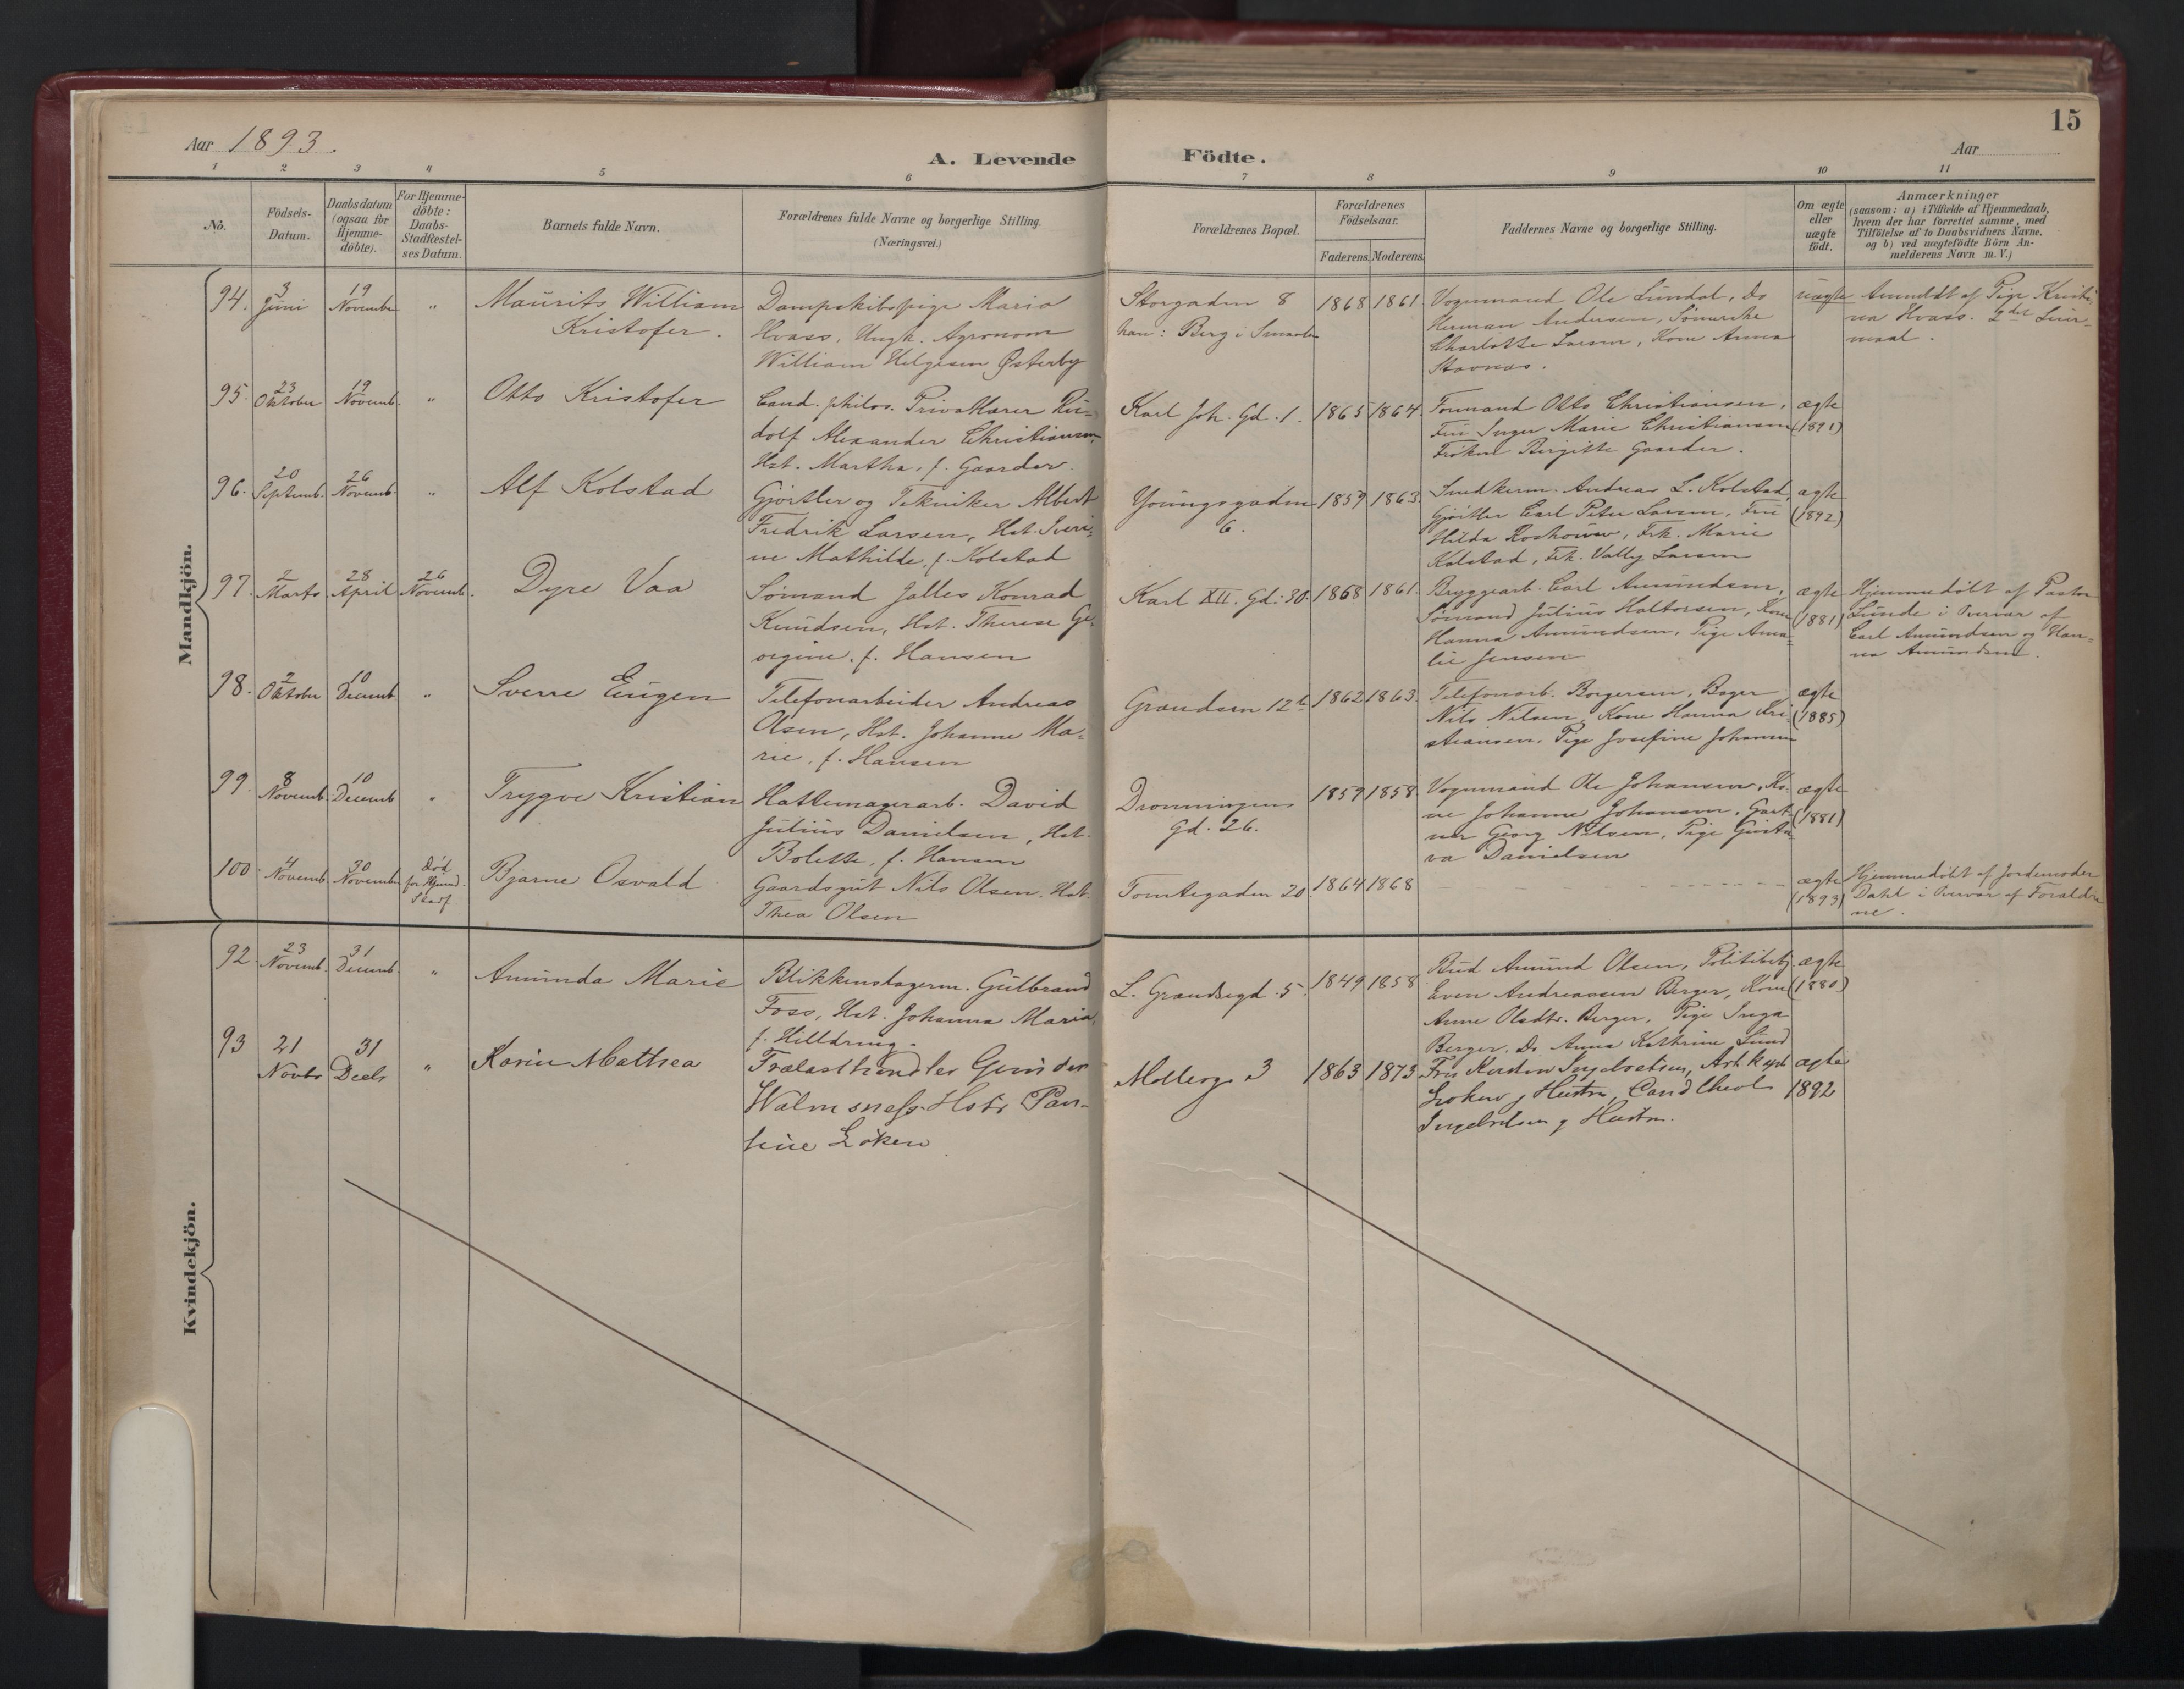 15
Aar 1893.
A. Levende Födte.
Aar
1 2 3 4 5 6 7 8 9 10 11
No.
Födsels-Datum.
Daabsdatum (ogsaa for Hjemme-döbte).
For Hjemme-döbte: Daabs-Stadfæstel-ses Datum.
Barnets fulde Navn.
Forældrenes fulde Navne og borgerlige Stilling.
(Næringsvei.)
Forældrenes Bopæl.
Forældrenes Födselsaar.
Faderens. Moderens.
Faddernes Navne og borgerlige Stilling.
Om ægte eller uægte födt.
Anmærkninger
(saasom: a) i Tilfælde af Hjemmedaab,
hvem der har forrettet samme, med
Tilföielse af to Daabsvidners Navne,
og b) ved uægtefödte Börn An-
melderens Navn m. V.)
Mandkjön.
94. 3 Juni 19 November " Maurits William
Kristofer.
Dampskibspige Maria
Hvass, Ungk. Agronom
William Helgesen Østerby
Storgaden 8
han: Berg i Smaalen
1868 1861
Vognmand Ole Lundal, Do
Herman Andersen, Syerske
Charlotte Larsen, Kone Anna
Stavnas.
uægte
Anmeldt af Pige Kristi-
na Hvass. 2det Leier-
maal.
95. 23 Oktober 19 Novemb. " Otto Kristofer
Cand. philos. Privatlærer Ru-
dolf Alexander Christiansen,
Hst. Martha, f. Gaarder.
Karl Joh. Gd. 1.
1865 1864
Formand Otto Christiansen,
Fru Inger Marie Christiansen
Frøken Birgitte Gaarder.
ægte
(1891)
96. 20 Septemb. 26 Novemb. " Alf Kolstad
Gjørtler og Tekniker Albert
Fredrik Larsen, Hst. Sveri-
ne Mathilde, f. Kolstad
Youngsgaden
6.
1859 1863
Snedkerm. Andreas L. Kolstad,
Gjørtler Carl Peter Larsen, Fru
Hilda Roshauw, Frk. Marie
Kolstad, Frk. Vally Larsen
ægte
(1892)
97. 2 Marts 28 April 26 Novemb. Dyre Vaa
Sømand Jalles Konrad
Knudsen, Hst. Therese Ge-
orgine, f. Hansen
Karl XII. Gd. 30.
1868 1861.
Bryggearb. Carl Amundsen,
Sømand Julius Haltorsen, Kone
Hanna Amundsen, Pige Ama-
lie Jensen
ægte
(1881)
Hjemmedøbt af Pastor
Lunde i Overvær af
Carl Amundsen og Han-
na Amundsen.
98. 2 Oktober 10 Decemb. " Sverre Eugen
Telefonarbeider Andreas
Olsen, Hst. Johanne Ma-
rie, f. Hansen
Grændsen 12b
1862 1863.
Telefonarb. Borgersen, Bager
Nils Nilsen, Kone Hanna Kri-
stiansen, Pige Josefine Johansen
ægte
(1885)
99. 8 Novemb. 10 Decemb " Trygve Kristian
Hattemagerarb. David
Julius Danielsen, Hst.
Bolette, f. Hansen
Dronningens
Gd. 26.
1859 1858.
Vognmand Ole Johansen, Ko-
ne Johanne Johansen, Gart-
ner Georg Nilsen, Pige Gusta-
va Danielsen
ægte
(1881)
100. 4 Novemb. 30 November Død
for Hjemd.
Stadf
Bjarne Osvald
Gaardsgut Nils Olsen, Hst.
Thea Olsen
Tomtegaden 20
1864 1868
ægte
(1893)
Hjemmedøbt af Jordemoder
Dahl i Overvær af Forældre
ne.
Kvindekjön.
92. 23 Novemb. 31 Decemb. " Amunda Marie
Blikkenslagerm. Gulbrand
Foss, Hst. Johanna Maria,
f. Helldring.
L. Grændsegd. 5.
1849 1858
Bud Amund Olsen, Politibetj.
Even Andreassen Berger, Kone
Anne Olsdtr. Berger, Pige Inga
Berger, Do Anna Kathrine Lund
ægte
(1880)
93 21 Novbr 31 Decbr " Karin Mathea
Trælasthandler Gunder
Walmsness Hstr Pau-
line Løken
Møllerg 3
1863 1873
Fru Kirstin Ingebretsen,
Løken og Hustru, Cand theol
Ingebretsen og Hustru.
ægte
1892